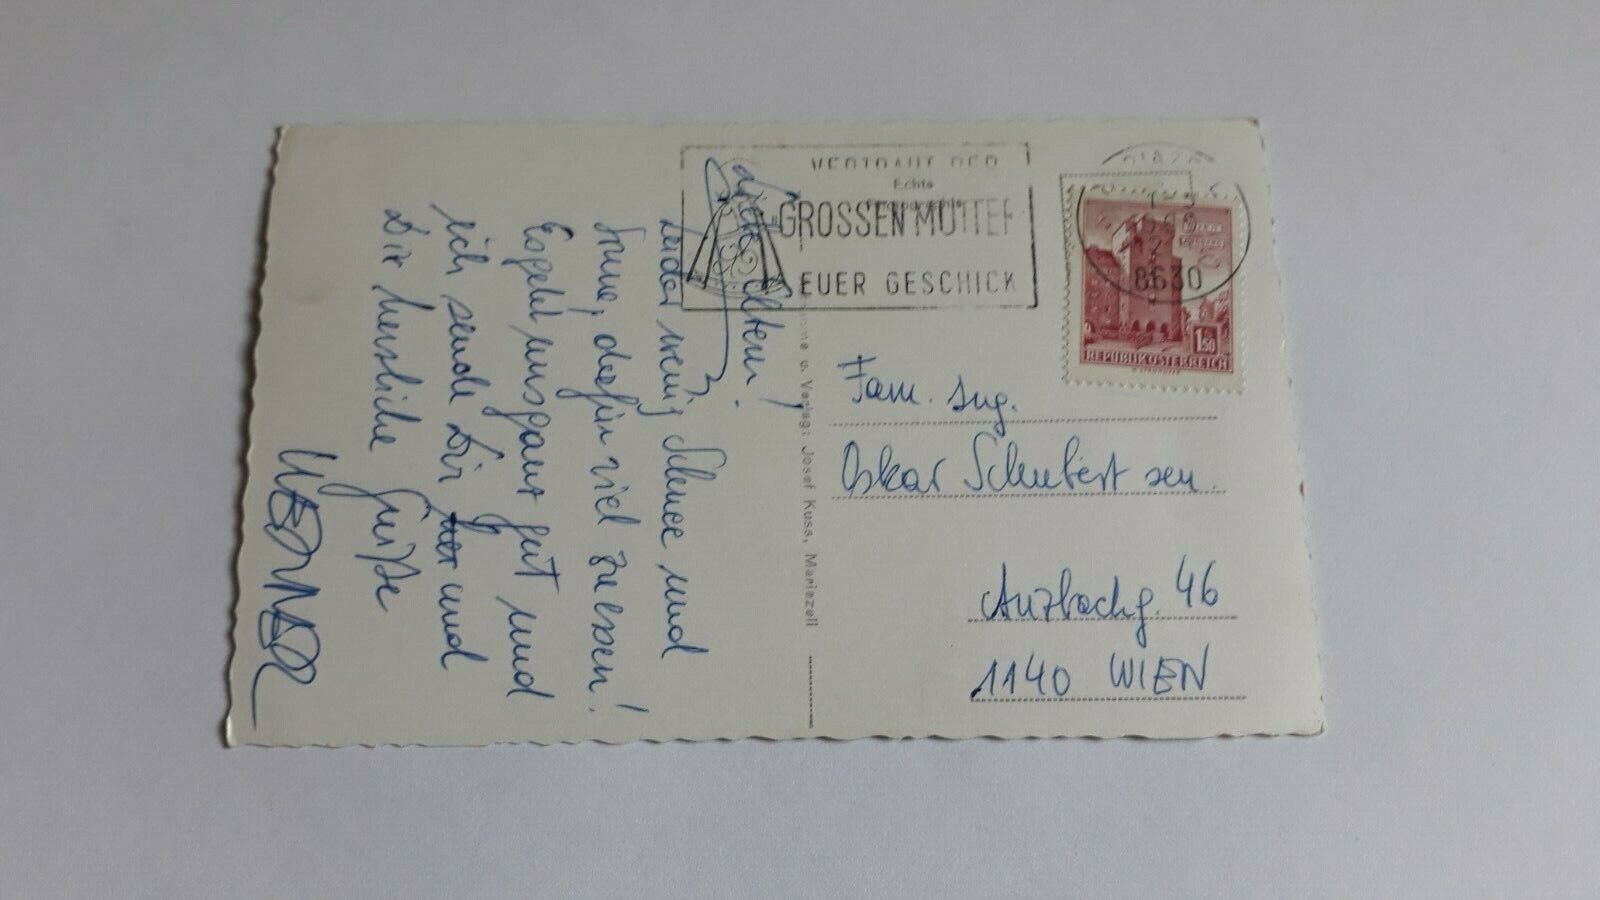 Liebe Eltern!
Leider wenig Schnee und
Sonne, dafür viel zu essen!
Es geht uns ganz gut und
ich sende Dir und
Dir herzliche Grüße
WERNER
VERTRAUT DER
GROSSEN MUTTER
EUER GESCHICK
Echte
8630
1.50
REPUBLIK ÖSTERREICH
u. Verlag: Josef Kuss, Mariazell
Fam. Ing.
Oskar Schubert sen.
Anzbachg. 46
1140 WIEN